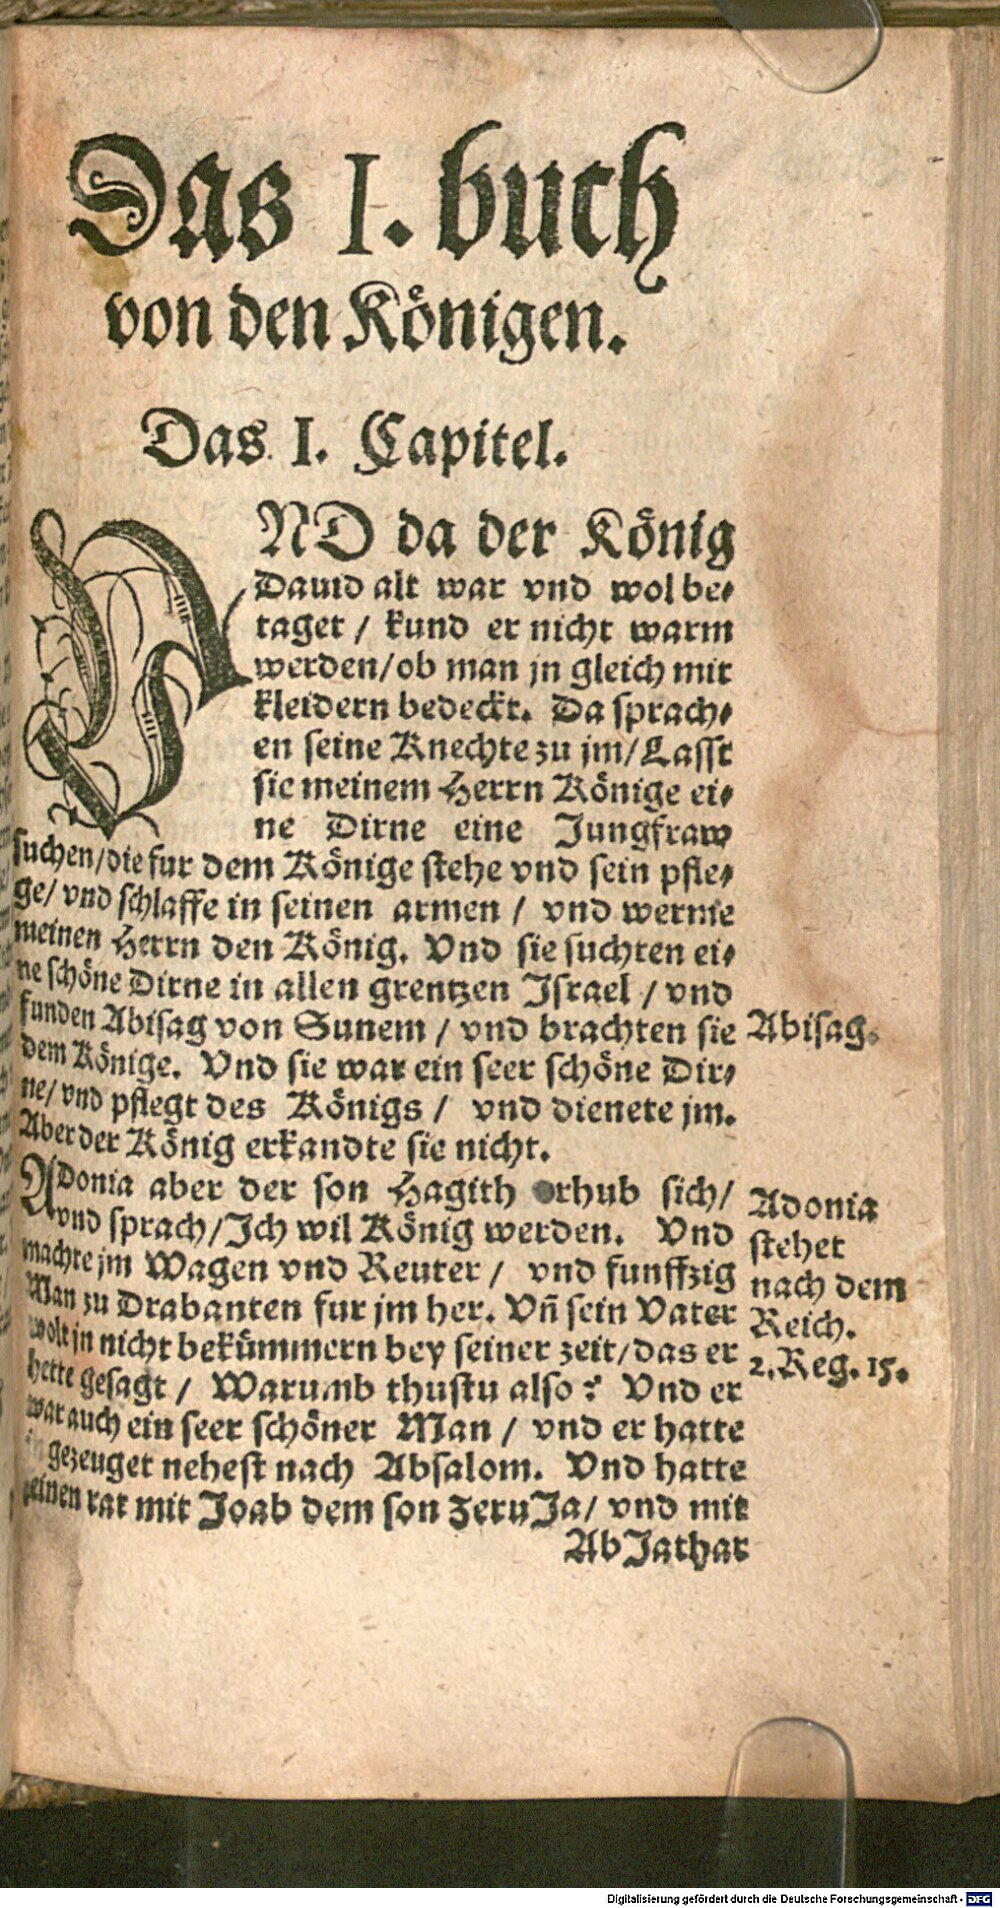 Das I. buch
von den Königen.
Das I. Capitel.
VND da der König
Dauid alt war vnd wol be-
taget / kund er nicht warm
werden / ob man jn gleich mit
kleidern bedeckt. Da sprach-
en seine Knechte zu jm / Lasst
sie meinem Herrn Könige ei-
ne Dirne eine Jungfraw
suchen / die fur dem Könige stehe vnd sein pfle-
ge / vnd schlaffe in seinen armen / vnd werme
meinen Herrn den König. Vnd sie suchten ei-
ne schöne Dirne in allen grentzen Israel / vnd
funden Abisag von Sunem / vnd brachten sie
Abisag.
dem Könige. Vnd sie war ein seer schöne Dir-
ne / vnd pflegt des Königs / vnd dienete jm.
Aber der König erkandte sie nicht.
ADonia aber der son Hagith erhub sich /
vnd sprach / Ich wil König werden. Vnd
machte jm Wagen vnd Reuter / vnd funffzig
Man zu Drabanten fur jm her. Vñ sein Vater
wolt jn nicht bekümmern bey seiner zeit / das er
hette gesagt / Warumb thustu also? Vnd er
war auch ein seer schöner Man / vnd er hatte
jn gezeuget nehest nach Absalom. Vnd hatte
seinen rat mit Joab dem son ZeruJa / vnd mit
AbJathar
Adonia
stehet
nach dem
Reich.
2. Reg. 15.
Digitalisierung gefördert durch die Deutsche Forschungsgemeinschaft - DFG